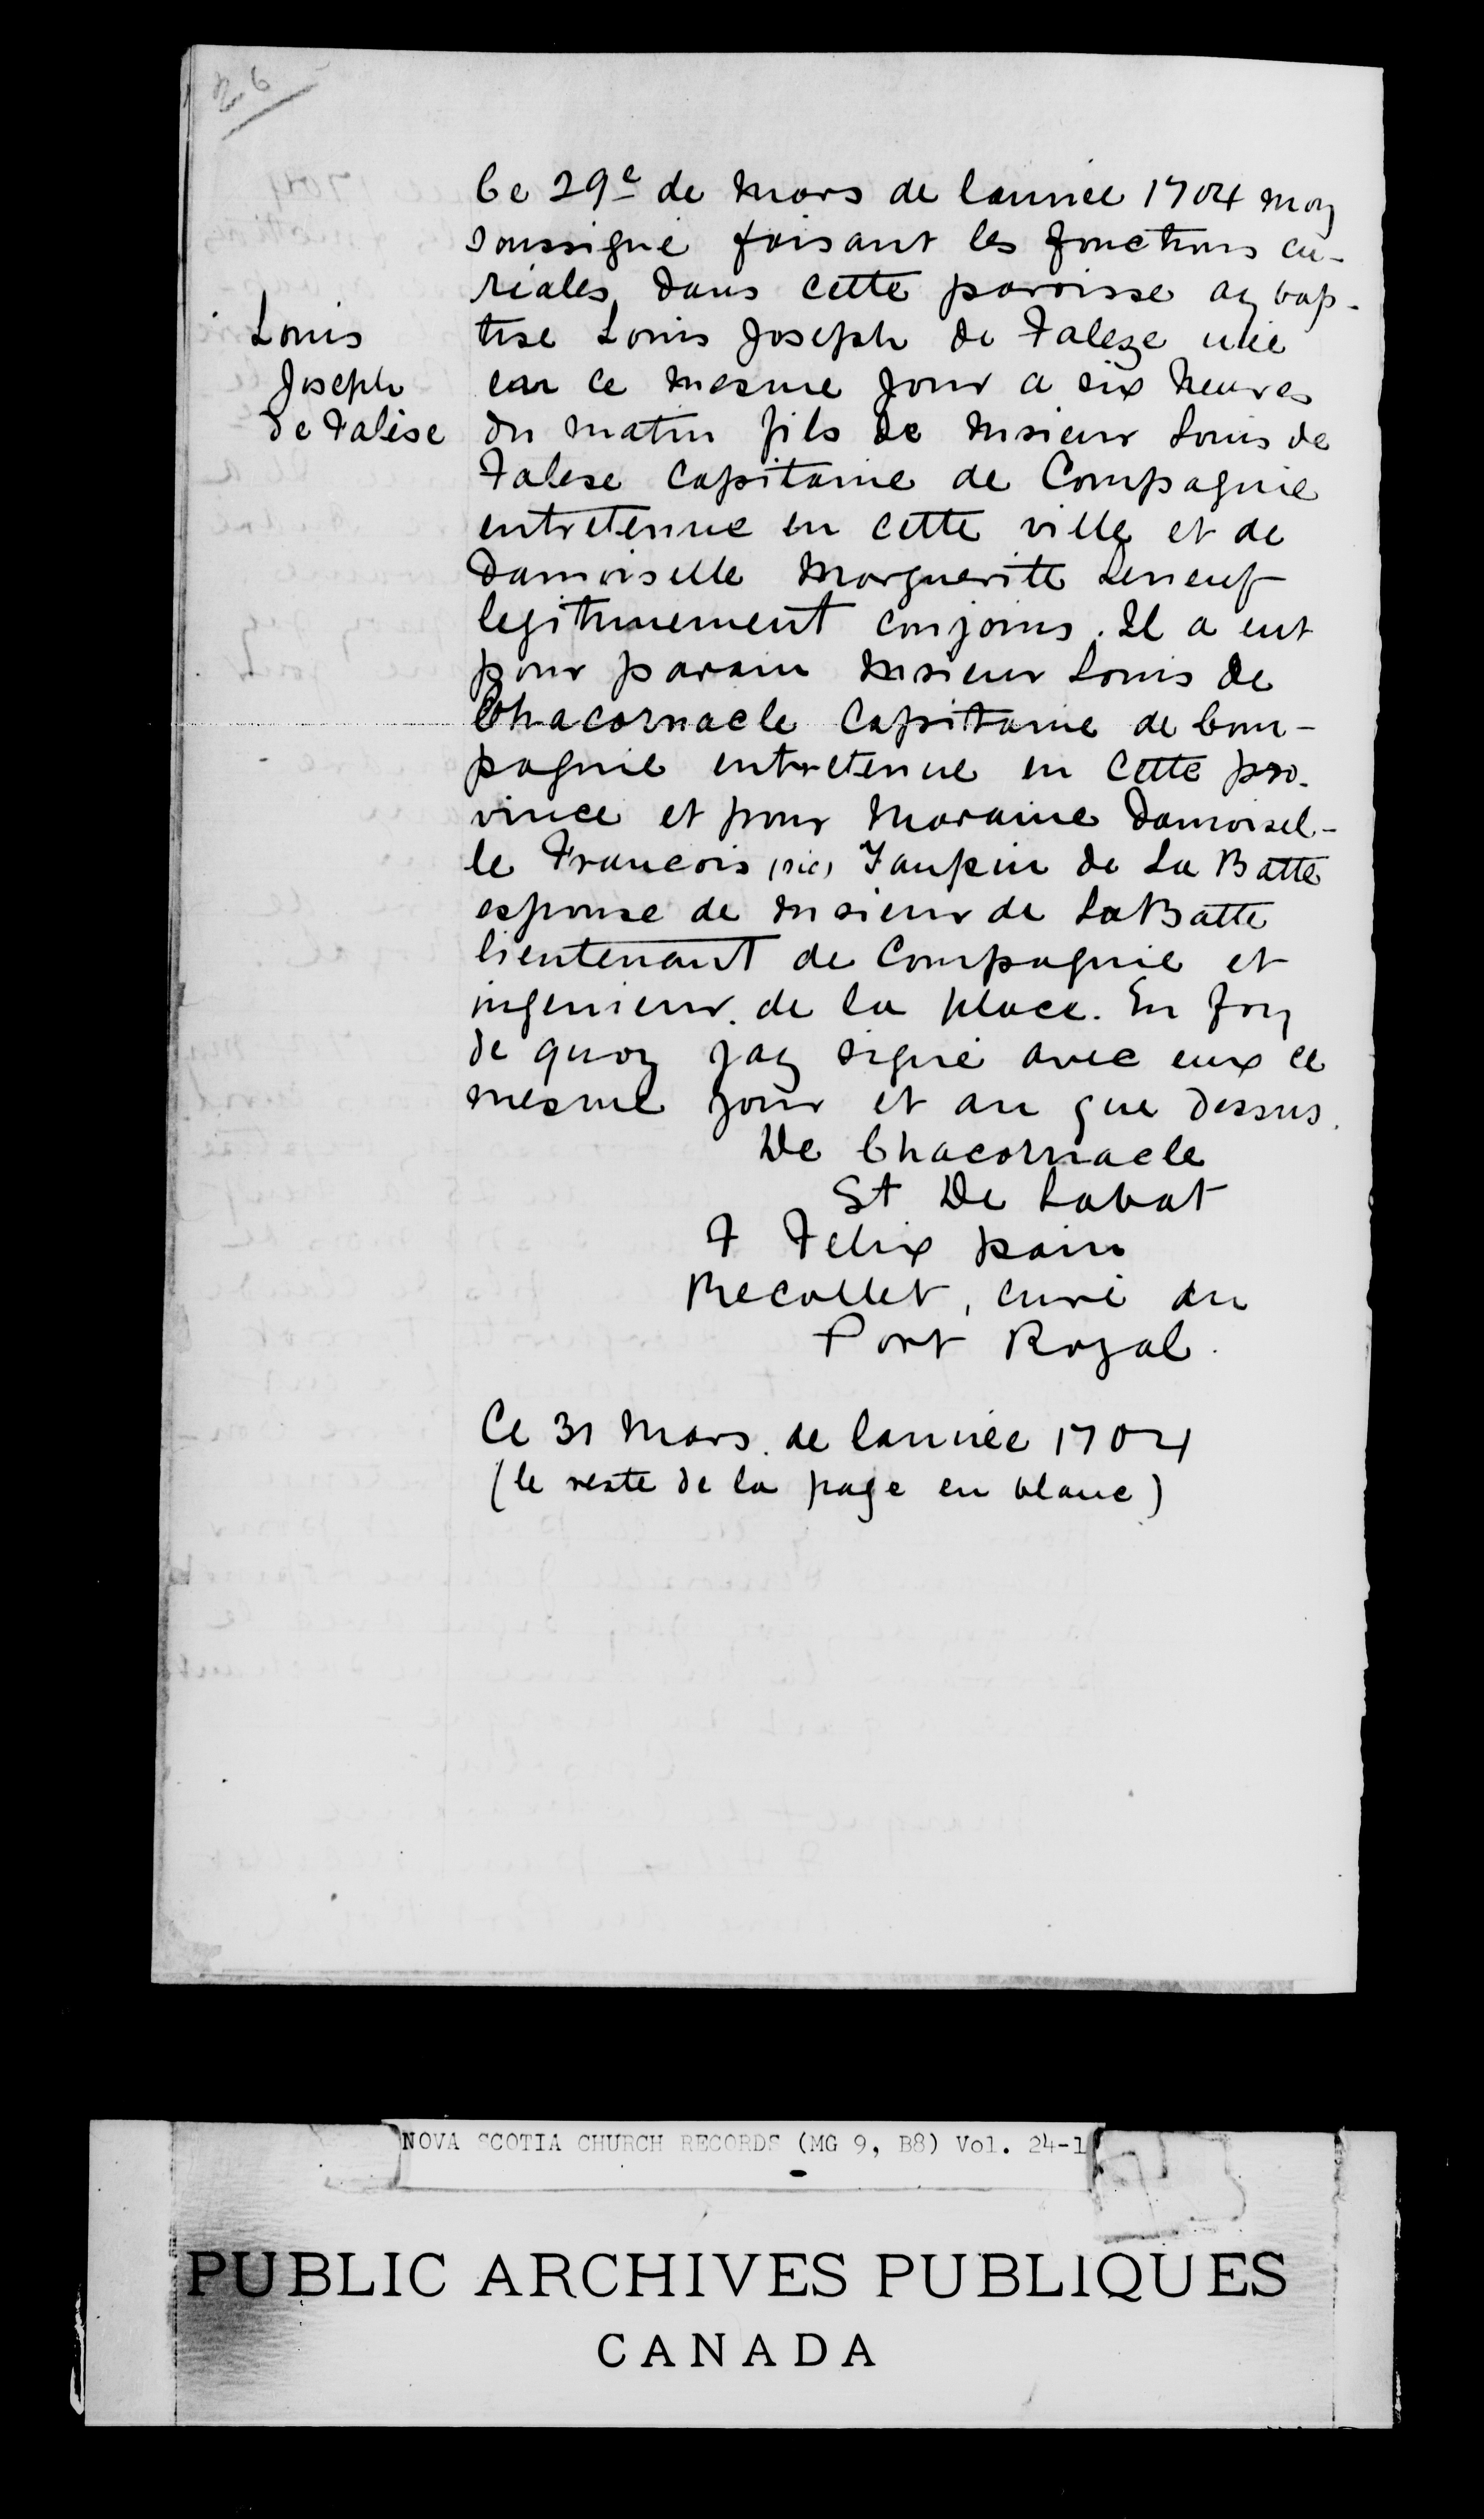 26
Ce 29e de Mars de lannée 1704 moy
soussigné faisant les fonctions cu-
riales dans cette paroisse ay bap-
Louis
tise Louis Joseph de Faleze
Joseph
ce mesme jour a six heures
de Falese
du matin fils de Msieur Louis de
Falese Capitaine de Compagnie
entretenue en cette ville et de
Damoiselle Margueritte Leneuf
legitimement conjoins. Il a eut
pour parain Msieur Louis de
Chacornacle Capitaine de Com-
pagnie entretenue en cette pro-
vince et pour Maraine Damoisel-
le Francois (sic) Jaupin de La Batte
espouse de Msieur de La Batte
lieutenant de Compagnie et
ingenieur de la place. En foy
de quoy jay signé avec eux ce
mesme jour et an que dessus.
De Chacornacle
St De Labat
F Felix pain
Recollet, curé du
Port Royal.
Ce 31 Mars de lannée 1704
(le reste de la page en blanc)
NOVA SCOTIA CHURCH RECORDS (MG 9, B8) Vol. 24-1
PUBLIC ARCHIVES PUBLIQUES
CANADA